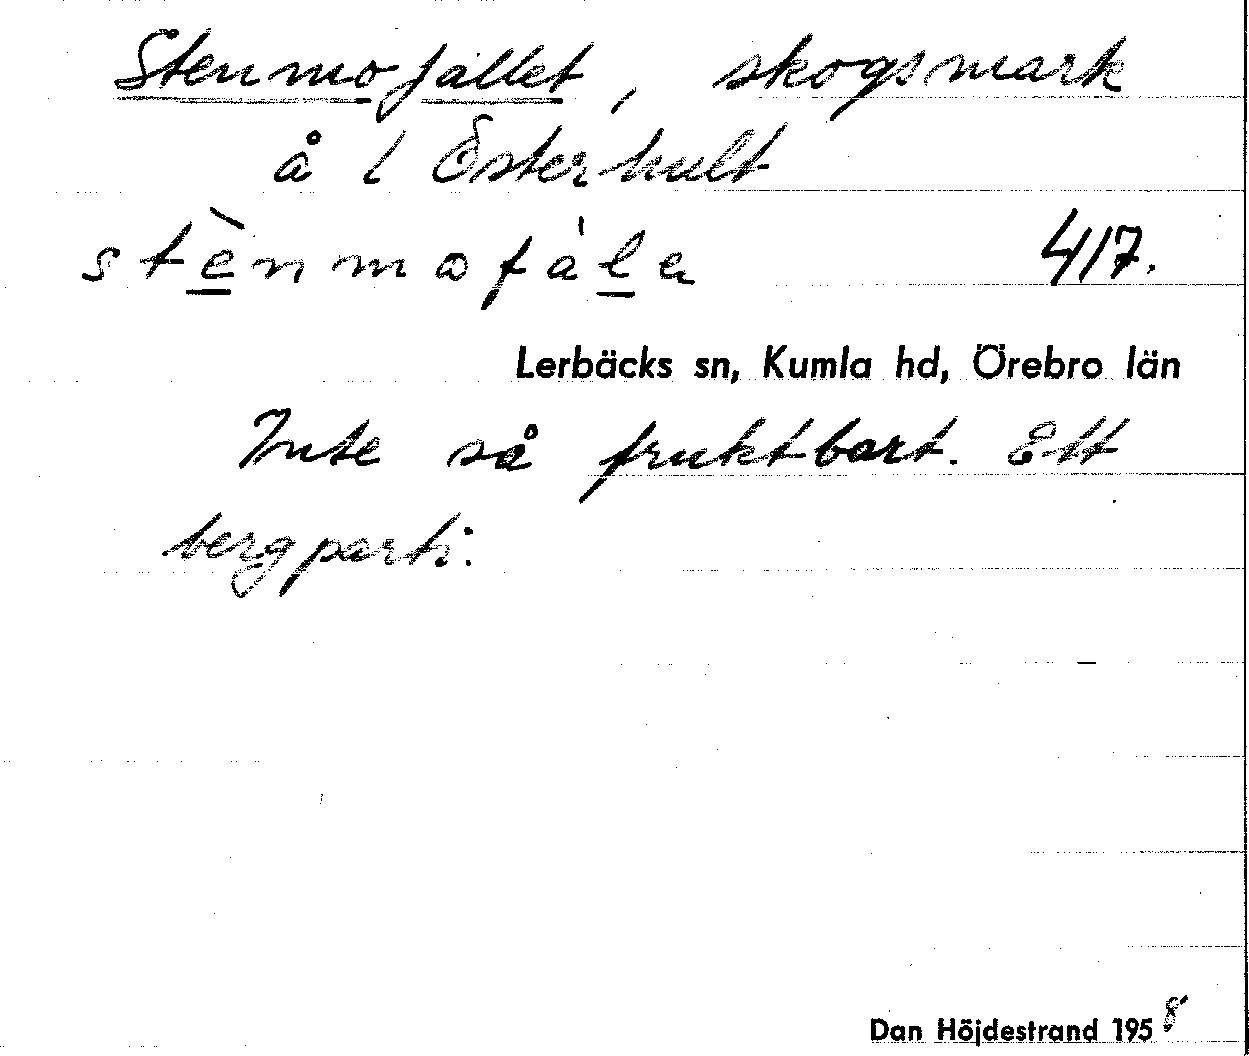 Stenmofallet, skogsmark
å l Österhult
stènmofàla
417.
Lerbäcks sn, Kumla hd, Örebro län
Inte så fruktbart. Ett
bergparti.
Dan Höjdestrand 1958